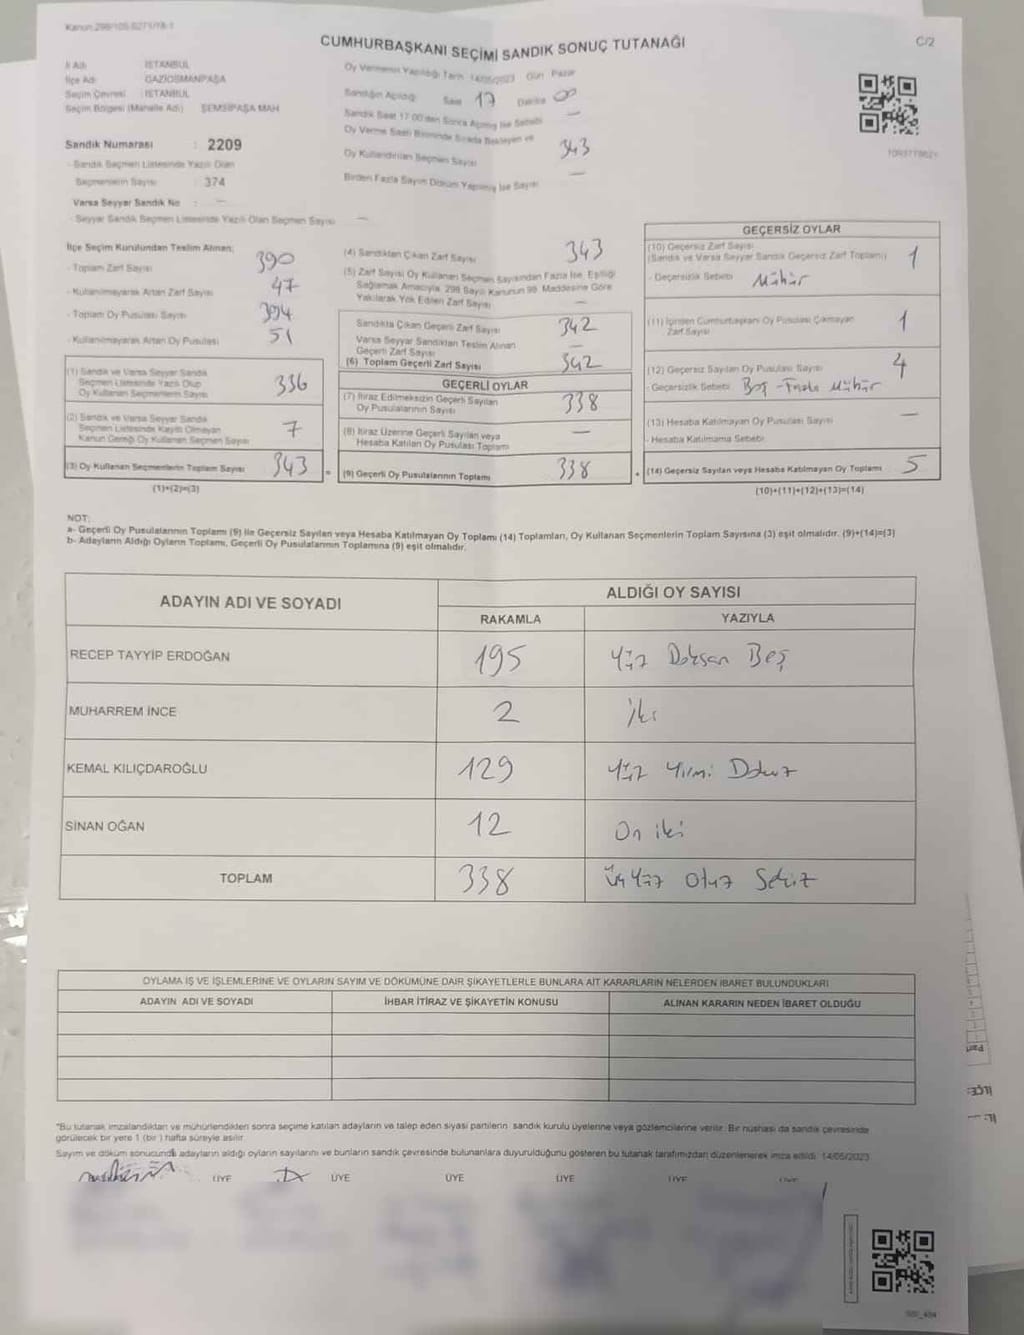 CUMHURBAŞKANI SEÇİMİ SANDIK SONUÇ TUTANAĞI
C/2
İl Adı : İSTANBUL
İlçe Adı : GAZİOSMANPAŞA
Seçim Çevresi : İSTANBUL
Seçim Bölgesi (Mahalle Adı) : ŞEMSİPAŞA MAH
Sandık Numarası : 2209
- Sandık Seçmen Listesinde Yazılı Olan
Seçmenlerin Sayısı : 374
Varsa Seyyar Sandık No : —
- Seyyar Sandık Seçmen Listesinde Yazılı Olan Seçmen Sayısı —
Oy Vermenin Yapıldığı Tarih 14/05/2023 Gün Pazar
Sandığın Açıldığı Saat 17 Dakika 00
Sandık Saat 17.00'den Sonra Açılmış İse Sebebi —
Oy Verme Saati Bitiminde Sırada Bekleyen ve
Oy Kullandırılan Seçmen Sayısı 343
Birden Fazla Sayım Döküm Yapılmış İse Sayısı —
İlçe Seçim Kurulundan Teslim Alınan;
- Toplam Zarf Sayısı 390
- Kullanılmayarak Artan Zarf Sayısı 47
- Toplam Oy Pusulası Sayısı 394
- Kullanılmayarak Artan Oy Pusulası 51
(1) Sandık ve Varsa Seyyar Sandık
Seçmen Listesinde Yazılı Olup
Oy Kullanan Seçmenlerin Sayısı 336
(2) Sandık ve Varsa Seyyar Sandık
Seçmen Listesinde Kayıtlı Olmayan
Kanun Gereği Oy Kullanan Seçmen Sayısı 7
(3) Oy Kullanan Seçmenlerin Toplam Sayısı 343
(1)+(2)=(3)
(4) Sandıktan Çıkan Zarf Sayısı 343
(5) Zarf Sayısı Oy Kullanan Seçmen Sayısından Fazla İse, Eşitliği
Sağlamak Amacıyla, 298 Sayılı Kanunun 98. Maddesine Göre
Yakılarak Yok Edilen Zarf Sayısı —
Sandıkta Çıkan Geçerli Zarf Sayısı 342
Varsa Seyyar Sandıktan Teslim Alınan
Geçerli Zarf Sayısı —
(6) Toplam Geçerli Zarf Sayısı 342
GEÇERLİ OYLAR
(7) İtiraz Edilmeksizin Geçerli Sayılan
Oy Pusulalarının Sayısı 338
(8) İtiraz Üzerine Geçerli Sayılan veya
Hesaba Katılan Oy Pusulası Toplamı —
(9) Geçerli Oy Pusulalarının Toplamı 338
GEÇERSİZ OYLAR
(10) Geçersiz Zarf Sayısı
(Sandık ve Varsa Seyyar Sandık Geçersiz Zarf Toplamı) 1
- Geçersizlik Sebebi Mühür
(11) İçinden Cumhurbaşkanı Oy Pusulası Çıkmayan
Zarf Sayısı 1
(12) Geçersiz Sayılan Oy Pusulası Sayısı 4
- Geçersizlik Sebebi Boş - Fazla Mühür
(13) Hesaba Katılmayan Oy Pusulası Sayısı —
- Hesaba Katılmama Sebebi
(14) Geçersiz Sayılan veya Hesaba Katılmayan Oy Toplamı 5
(10)+(11)+(12)+(13)=(14)
NOT:
a- Geçerli Oy Pusulalarının Toplamı (9) ile Geçersiz Sayılan veya Hesaba Katılmayan Oy Toplamı (14) Toplamları, Oy Kullanan Seçmenlerin Toplam Sayısına (3) eşit olmalıdır. (9)+(14)=(3)
b- Adayların Aldığı Oyların Toplamı, Geçerli Oy Pusulalarının Toplamına (9) eşit olmalıdır.
ADAYIN ADI VE SOYADI ALDIĞI OY SAYISI
RAKAMLA YAZIYLA
RECEP TAYYİP ERDOĞAN 195 Yüz Doksan Beş
MUHARREM İNCE 2 İki
KEMAL KILIÇDAROĞLU 129 Yüz Yirmi Dokuz
SİNAN OĞAN 12 On iki
TOPLAM 338 Üç Yüz Otuz Sekiz
OYLAMA İŞ VE İŞLEMLERİNE VE OYLARIN SAYIM VE DÖKÜMÜNE DAİR ŞİKAYETLERLE BUNLARA AİT KARARLARIN NELERDEN İBARET BULUNDUKLARI
ADAYIN ADI VE SOYADI İHBAR İTİRAZ VE ŞİKAYETİN KONUSU ALINAN KARARIN NEDEN İBARET OLDUĞU
"Bu tutanak imzalandıktan ve mühürlendikten sonra seçime katılan adayların ve talep eden siyasi partilerin sandık kurulu üyelerine veya gözlemcilerine verilir. Bir nüshası da sandık çevresinde
görülecek bir yere 1 (bir ) hafta süreyle asılır.
Sayım ve döküm sonucunda adayların aldığı oyların sayılarını ve bunların sandık çevresinde bulunanlara duyurulduğunu gösteren bu tutanak tarafımızdan düzenlenerek imza edildi. 14/05/2023
ÜYE ÜYE ÜYE ÜYE ÜYE
İLÇE:
İL: